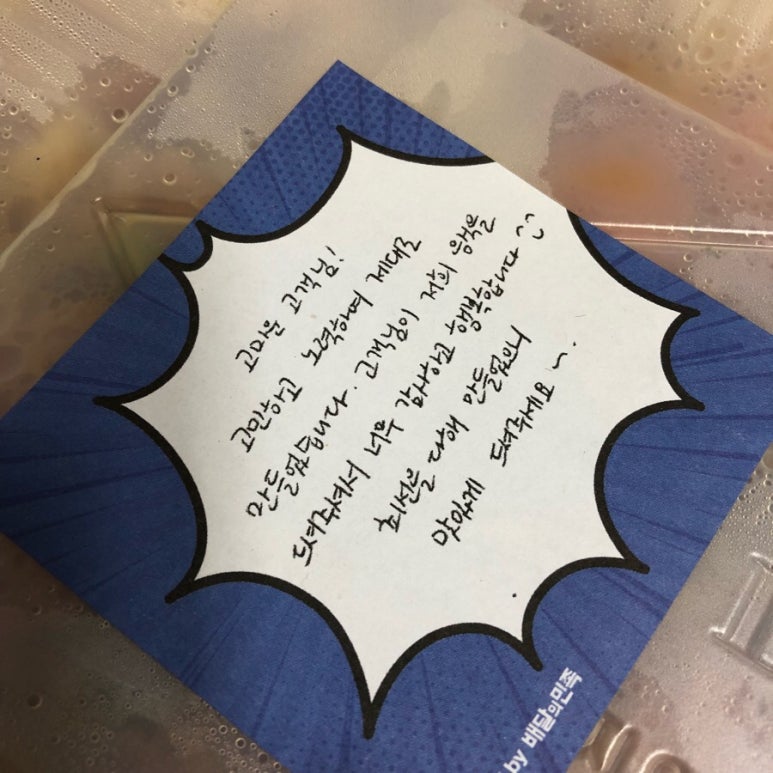 고마운 고객님!
고민하고 노력하여 제대로
만들었습니다. 고객님이 저희 음식을
드셔주셔서 너무 감사하고 행복합니다
최선을 다해 만들었으니
맛있게 드셔주세요~.
by 배달의민족